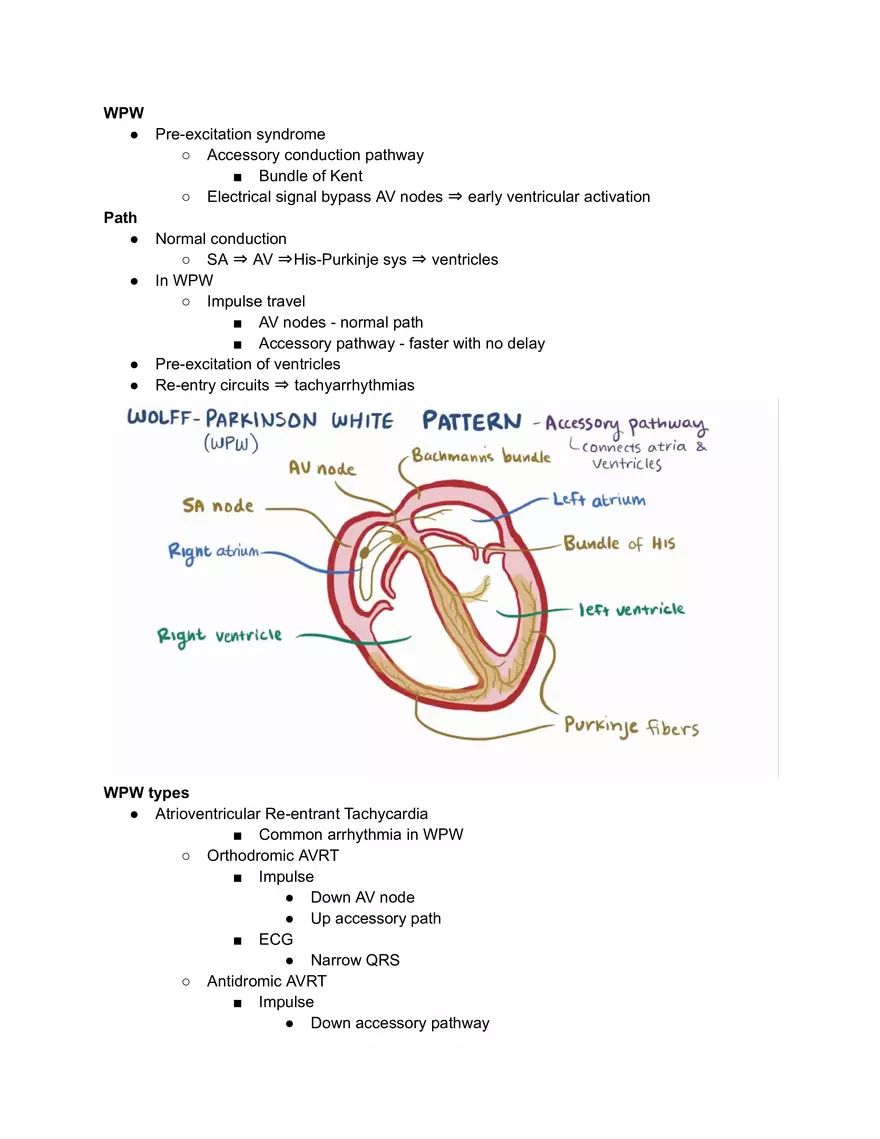 WPW
● Pre-excitation syndrome
○ Accessory conduction pathway
■ Bundle of Kent
○ Electrical signal bypass AV nodes ⇒ early ventricular activation
Path
● Normal conduction
○ SA ⇒ AV ⇒His-Purkinje sys ⇒ ventricles
● In WPW
○ Impulse travel
■ AV nodes - normal path
■ Accessory pathway - faster with no delay
● Pre-excitation of ventricles
● Re-entry circuits ⇒ tachyarrhythmias
WOLFF-PARKINSON WHITE PATTERN - Accessory pathway
(WPW)
connects atria &
ventricles
Bachmann's bundle
AV node
SA node
Left atrium
Right atrium
Bundle of HIS
left ventricle
Right ventricle
Purkinje fibers
WPW types
● Atrioventricular Re-entrant Tachycardia
■ Common arrhythmia in WPW
○ Orthodromic AVRT
■ Impulse
● Down AV node
● Up accessory path
■ ECG
● Narrow QRS
○ Antidromic AVRT
■ Impulse
● Down accessory pathway